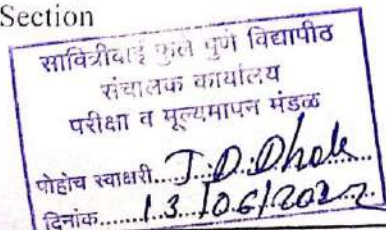 Section
सावित्रीबाई फुले पुणे विद्यापीठ
संचालक कार्यालय
परीक्षा व मूल्यमापन मंडळ
पोहोच स्वाक्षरी... J.D.Dhole
दिनांक...... 13/06/2022